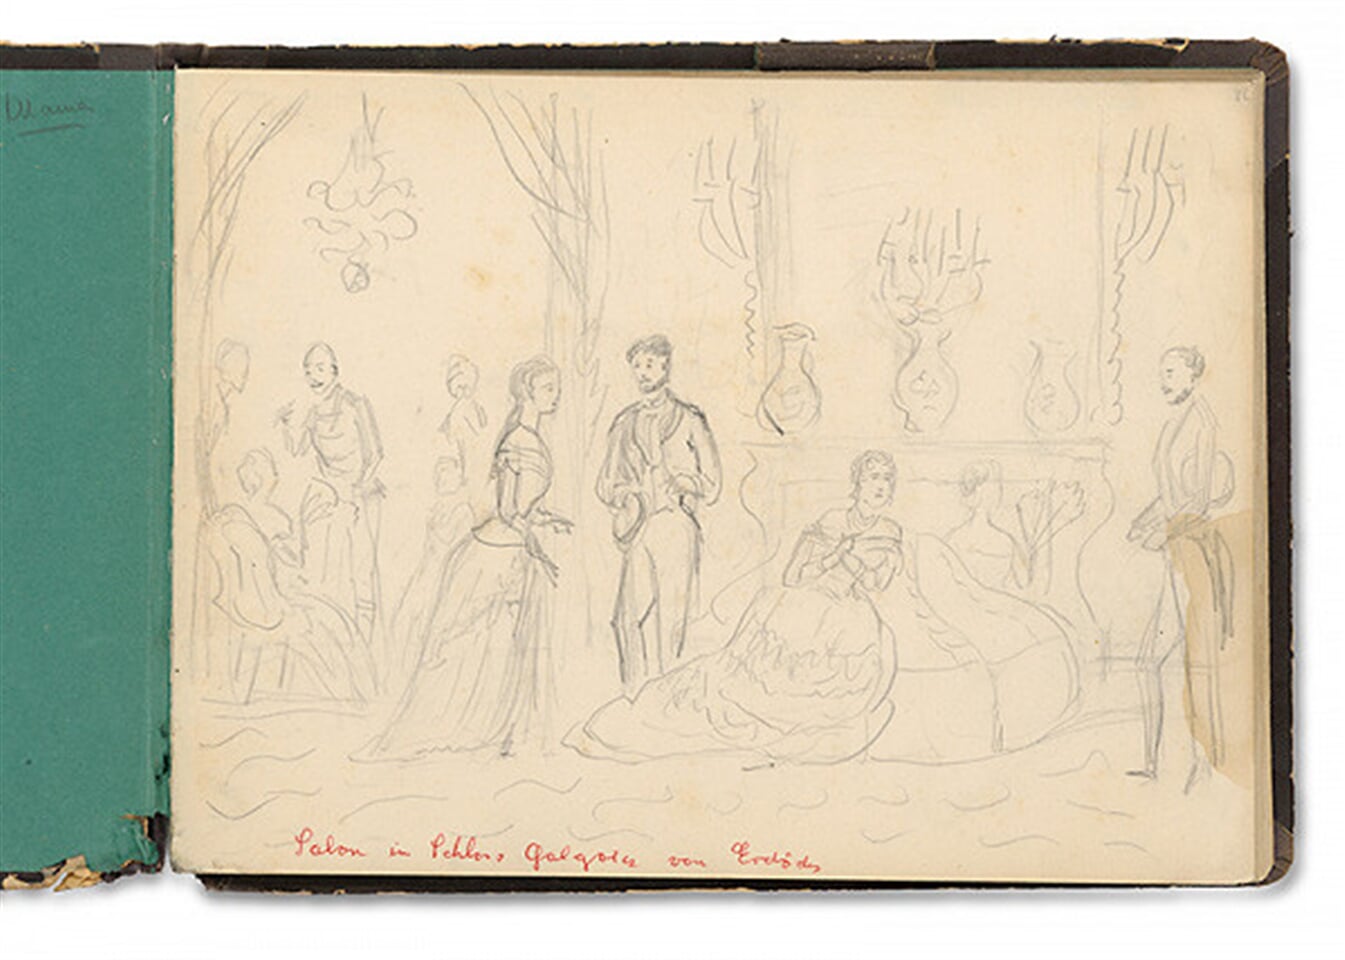 Mama
Salon in Schloss Galgócz von Erdödy